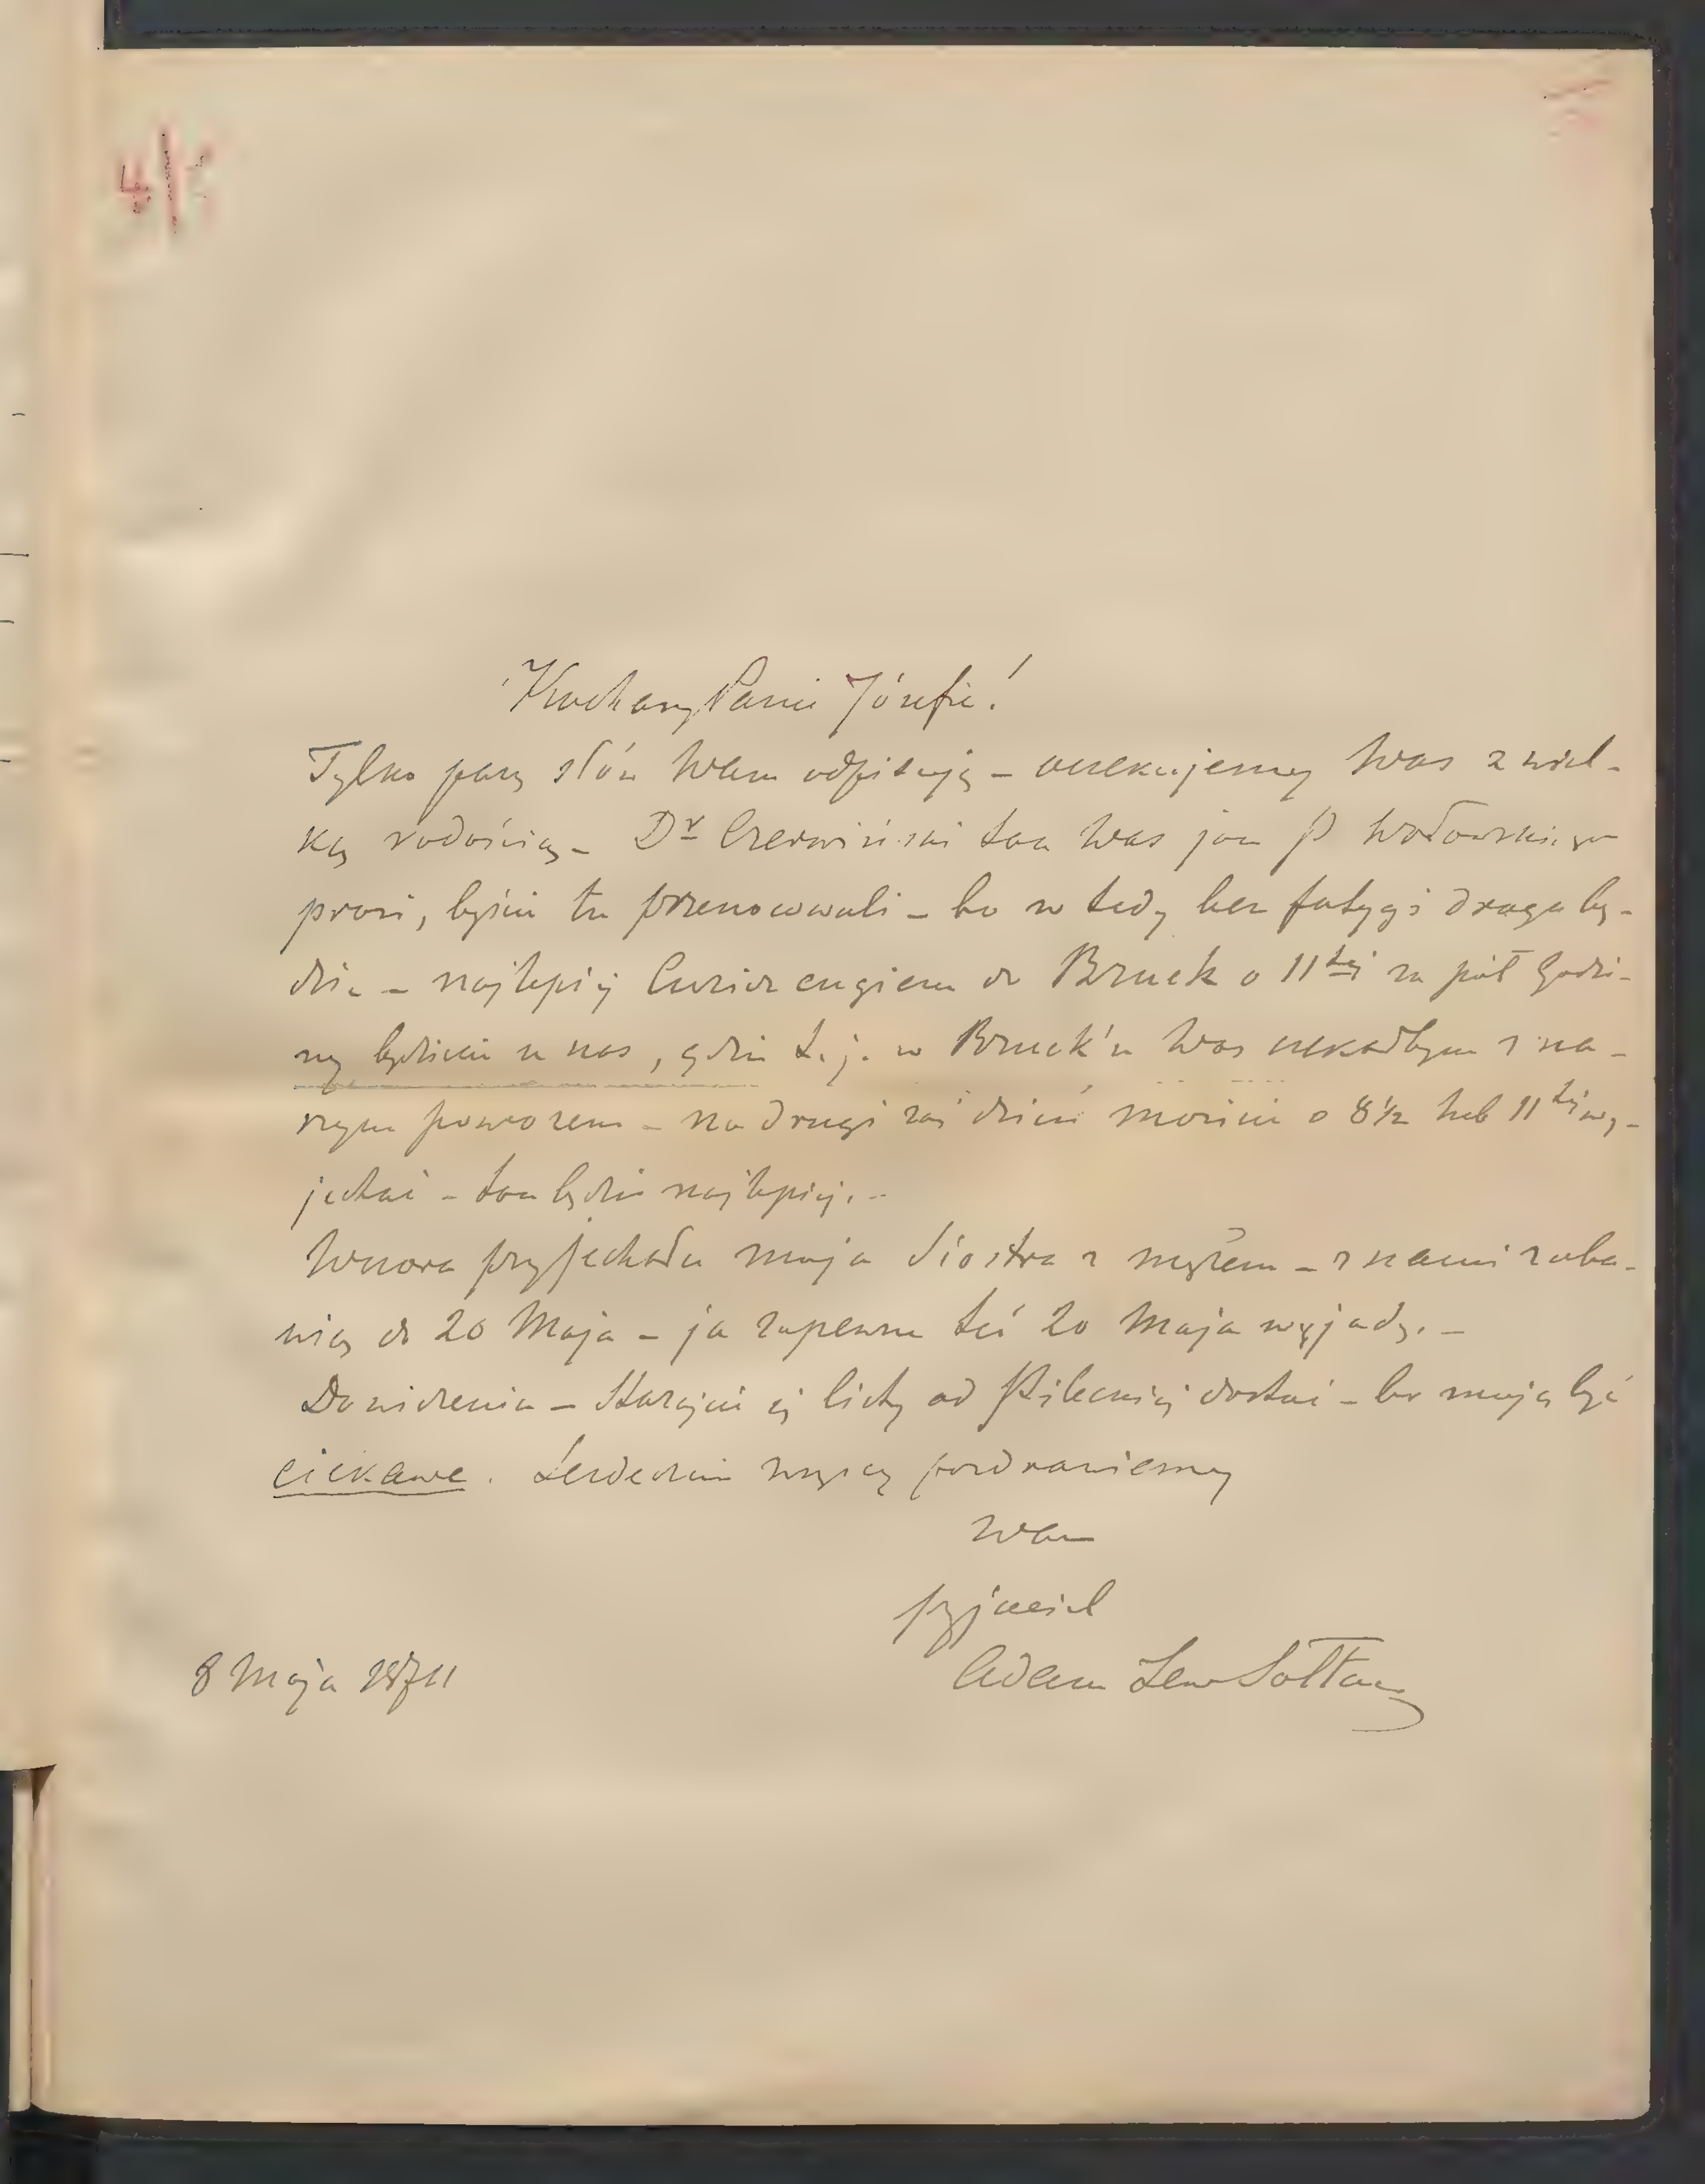 4/
Kochany Panie Józefie!
Tylko parę słów Wam odpisuję – oczekujemy Was z wiel-
ką radością – Dr Czerwiński tak Was jak P Wołowskiego
prosi, byście tu przenocowali – bo w tedy bez fatygi droga bę-
dzie – najlepiej do Bruck o 11tej za pół godzi-
ny będziecie u nas, gdzie t. j. w Bruck'u Was czekałbym z na-
szym powozem – na drugi zaś dzień możecie o 8½ lub 11tej wy-
jechać – tak będzie najlepiej. –
Wczora przyjechała moja Siostra z mężem – z nami zaba-
wią do 20 Maja – ja zapewne też 20 Maja wyjadę. –
Do widzenia – Starajcie się listy od Pileckiej dostać – bo mają być
ciekawe. Serdecznie wszyscy pozdrawiamy
Wam
przyjaciel
Adam Lew Sołtan
8 Maja